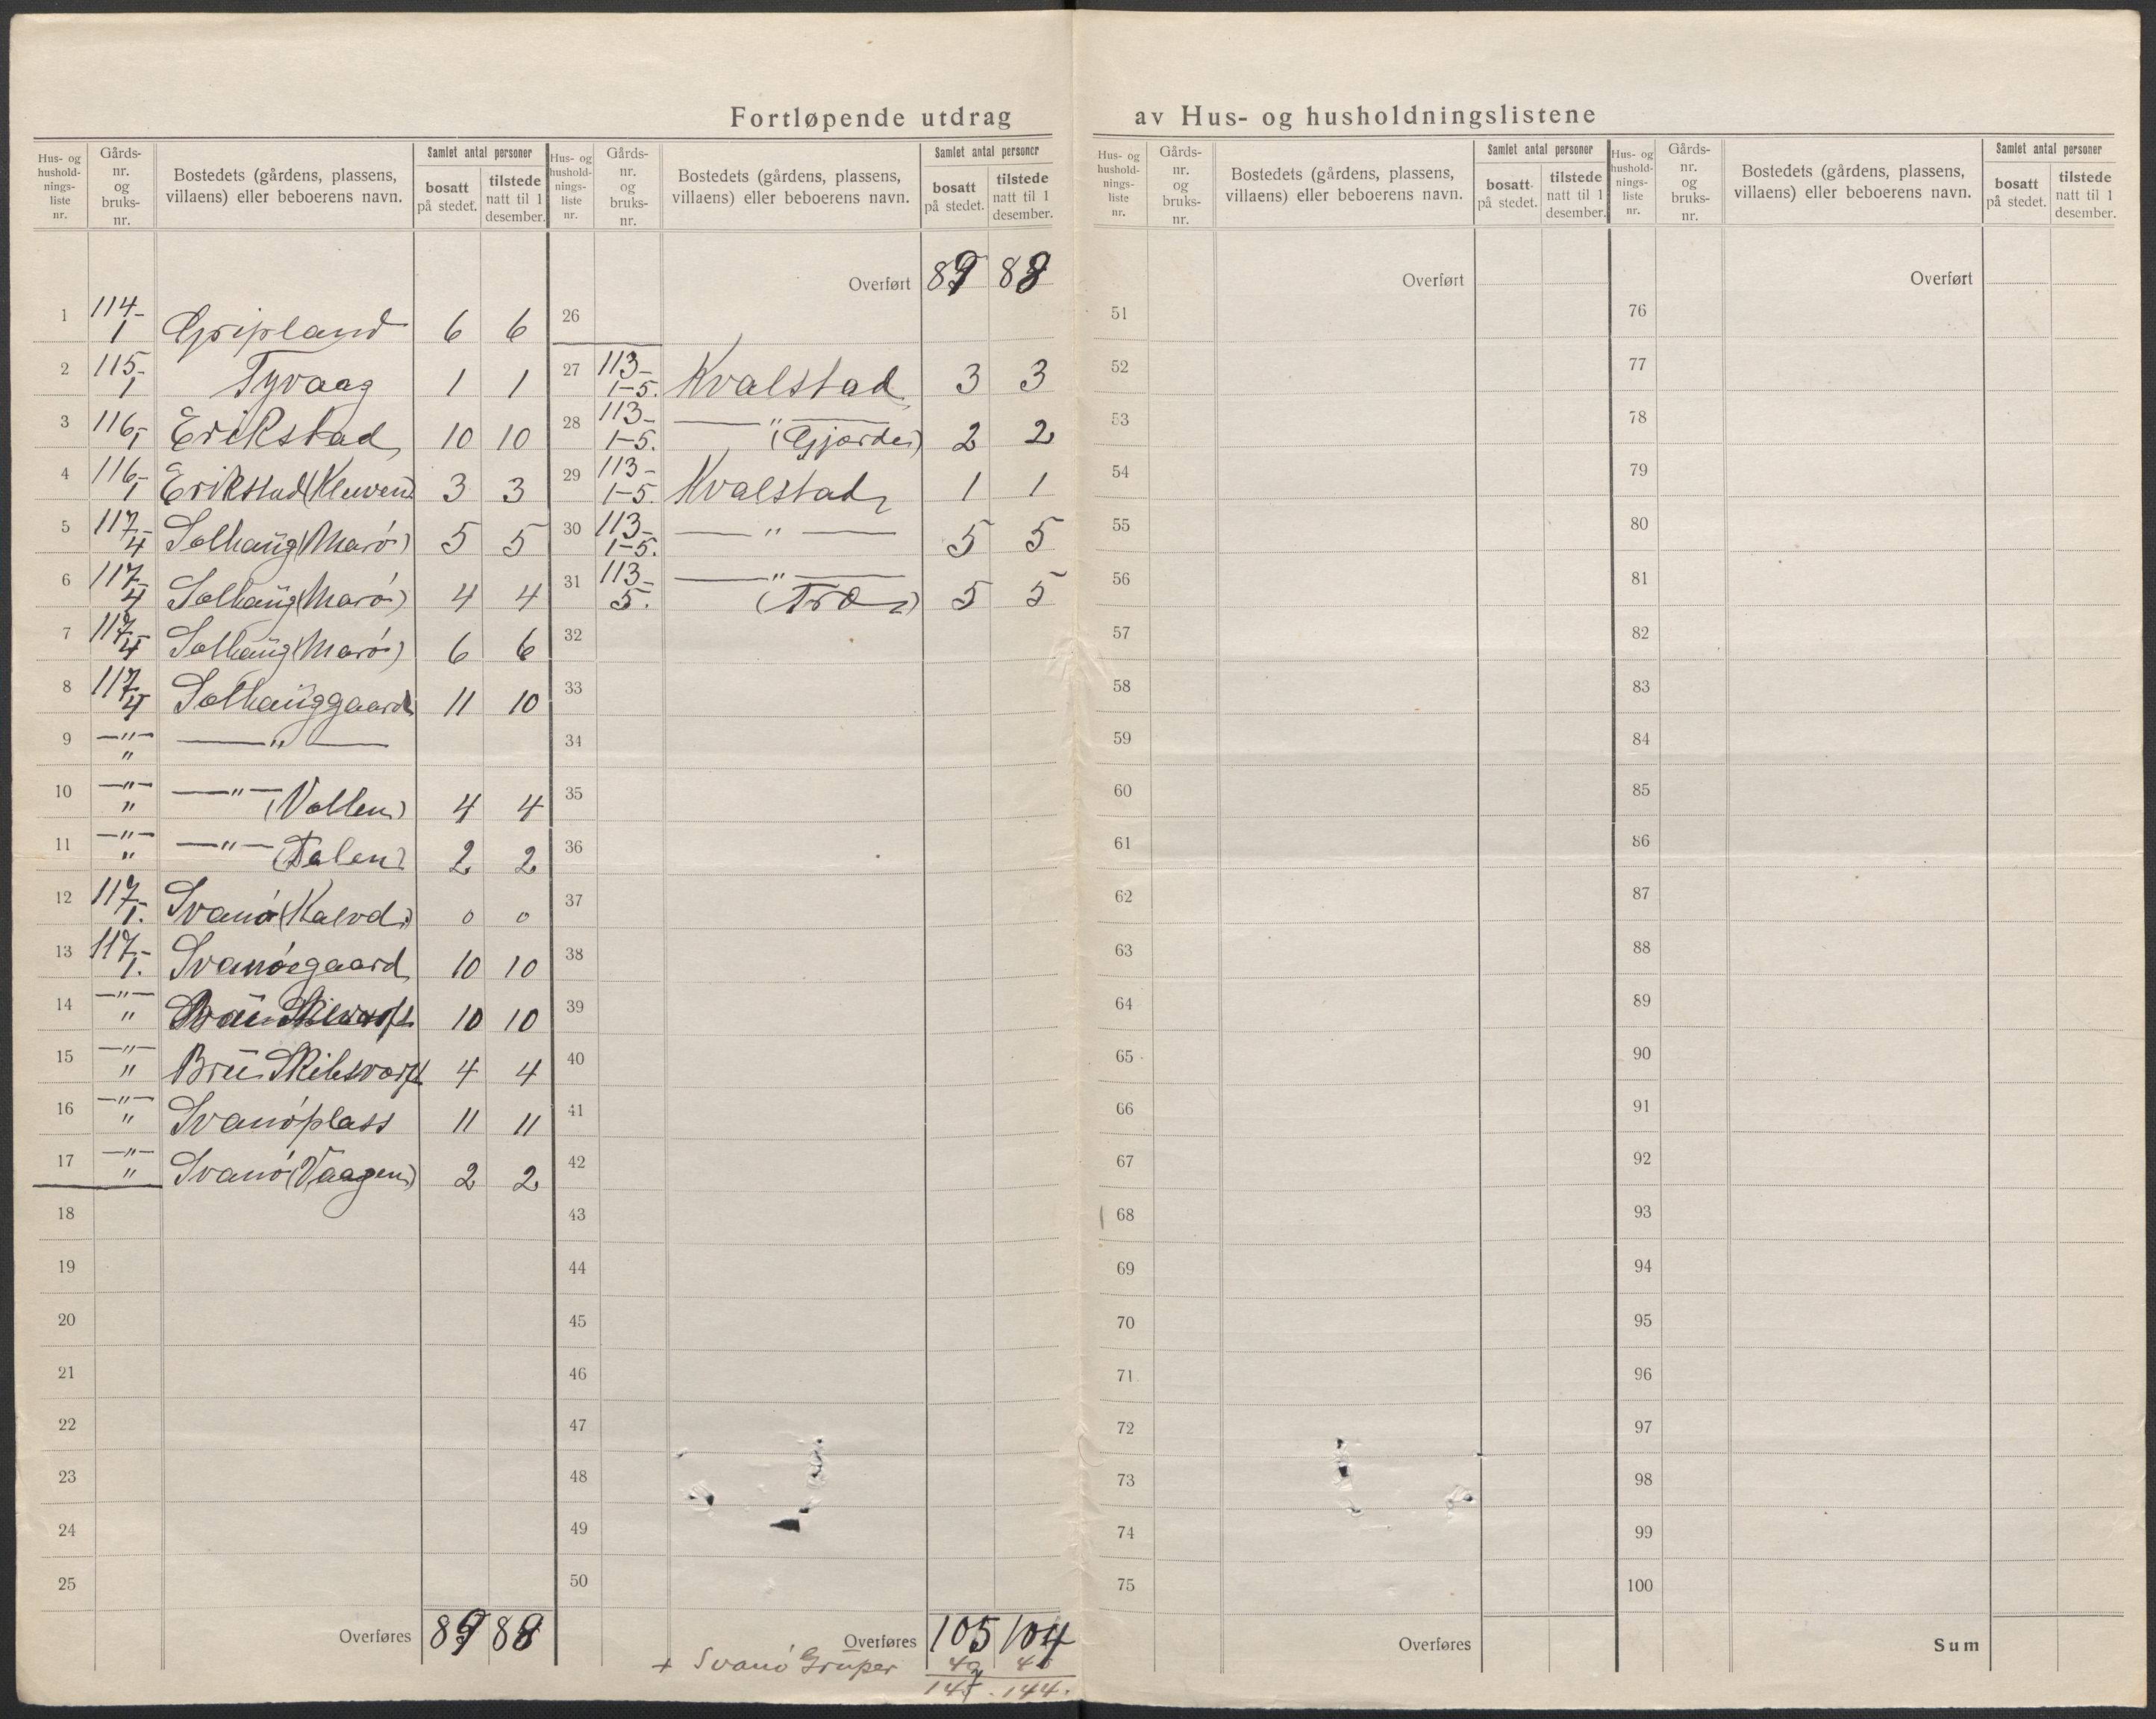 Fortløpende utdrag av Hus- og husholdningslistene
Hus- og hushold-nings-liste nr. Gårds-nr. og bruks-nr. Bostedets (gårdens, plassens, villaens) eller beboerens navn. Samlet antal personer bosatt på stedet. tilstede natt til 1 desember.
1 114-1 Gripland 6 6
2 115-1 Tyvaag 1 1
3 116-1 Erikstad 10 10
4 116-1 Erikstad (Kleiven) 3 3
5 117-4 Solhaüg (Marö) 5 5
6 117-4 Solhaüg (Marö) 4 4
7 117-4 Solhaüg (Marö) 6 6
8 117-4 Solhaüggaard 11 10
9 —"— " —"—
10 —"— " —"— (Vollen) 4 4
11 —"— " —"— (Dalen) 2 2
12 117-1. Svanö (Kalvd.) 0 0
13 117-1. Svanöegaard 10 10
14 —"— " 10 10
15 —"— " Brü Skibsværft 4 4
16 —"— " Svanöplass 11 11
17 —"— " Svanö (Vaagen) 2 2
18
19
20
21
22
23
24
25
Overføres 89 88
Hus- og hushold-nings-liste nr. Gårds-nr. og bruks-nr. Bostedets (gårdens, plassens, villaens) eller beboerens navn. Samlet antal personer bosatt på stedet. tilstede natt til 1 desember.
Overført 89 88
26
27 113-1-5. Kvalstad 3 3
28 113-1-5. —"— (Gjærde) 2 2
29 113-1-5. Kvalstad 1 1
30 113-1-5. —"— 5 5
31 113-5. —"— (Træ) 5 5
32
33
34
35
36
37
38
39
40
41
42
43
44
45
46
47
48
49
50
Overføres 105 104
+ Svanö Gruper 40 40
145. 144.
Hus- og hushold-nings-liste nr. Gårds-nr. og bruks-nr. Bostedets (gårdens, plassens, villaens) eller beboerens navn. Samlet antal personer bosatt på stedet. tilstede natt til 1 desember.
Overført
51
52
53
54
55
56
57
58
59
60
61
62
63
64
65
66
67
68
69
70
71
72
73
74
75
Overføres
Hus- og hushold-nings-liste nr. Gårds-nr. og bruks-nr. Bostedets (gårdens, plassens, villaens) eller beboerens navn. Samlet antal personer bosatt på stedet. tilstede natt til 1 desember.
Overført
76
77
78
79
80
81
82
83
84
85
86
87
88
89
90
91
92
93
94
95
96
97
98
99
100
Sum